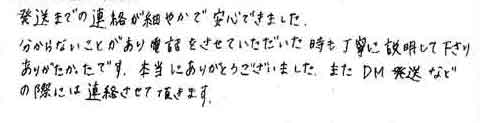 発送までの連絡が細やかで安心できました.
分からないことがあり電話をさせていただいた時も丁寧に説明して下さり
ありがたかったです. 本当にありがとうございました. また DM 発送など
の際には連絡させて頂きます.